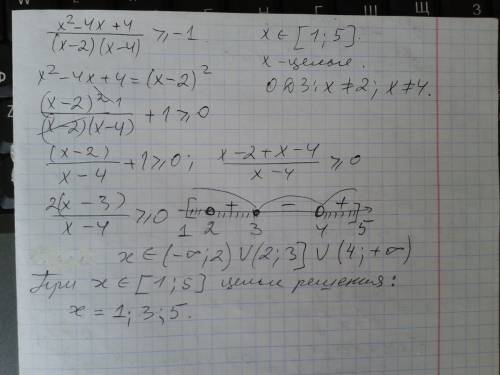 (x²-4x+4)/((x-2)(x-4)) ⩾ -1 x ∈ [1; 5].
x - целые.
x²-4x+4 = (x-2)² ОДЗ: x ≠ 2; x ≠ 4.
(x-2)²¹/((x-2)(x-4)) + 1 ⩾ 0
(x-2)/(x-4) + 1 ⩾ 0; (x-2+x-4)/(x-4) ⩾ 0
2(x-3)/(x-4) ⩾ 0 + - +
1 2 3 4 5
x ∈ (-∞; 2) ∪ (2; 3] ∪ (4; +∞)
При x ∈ [1; 5] целые решения:
x = 1; 3; 5.